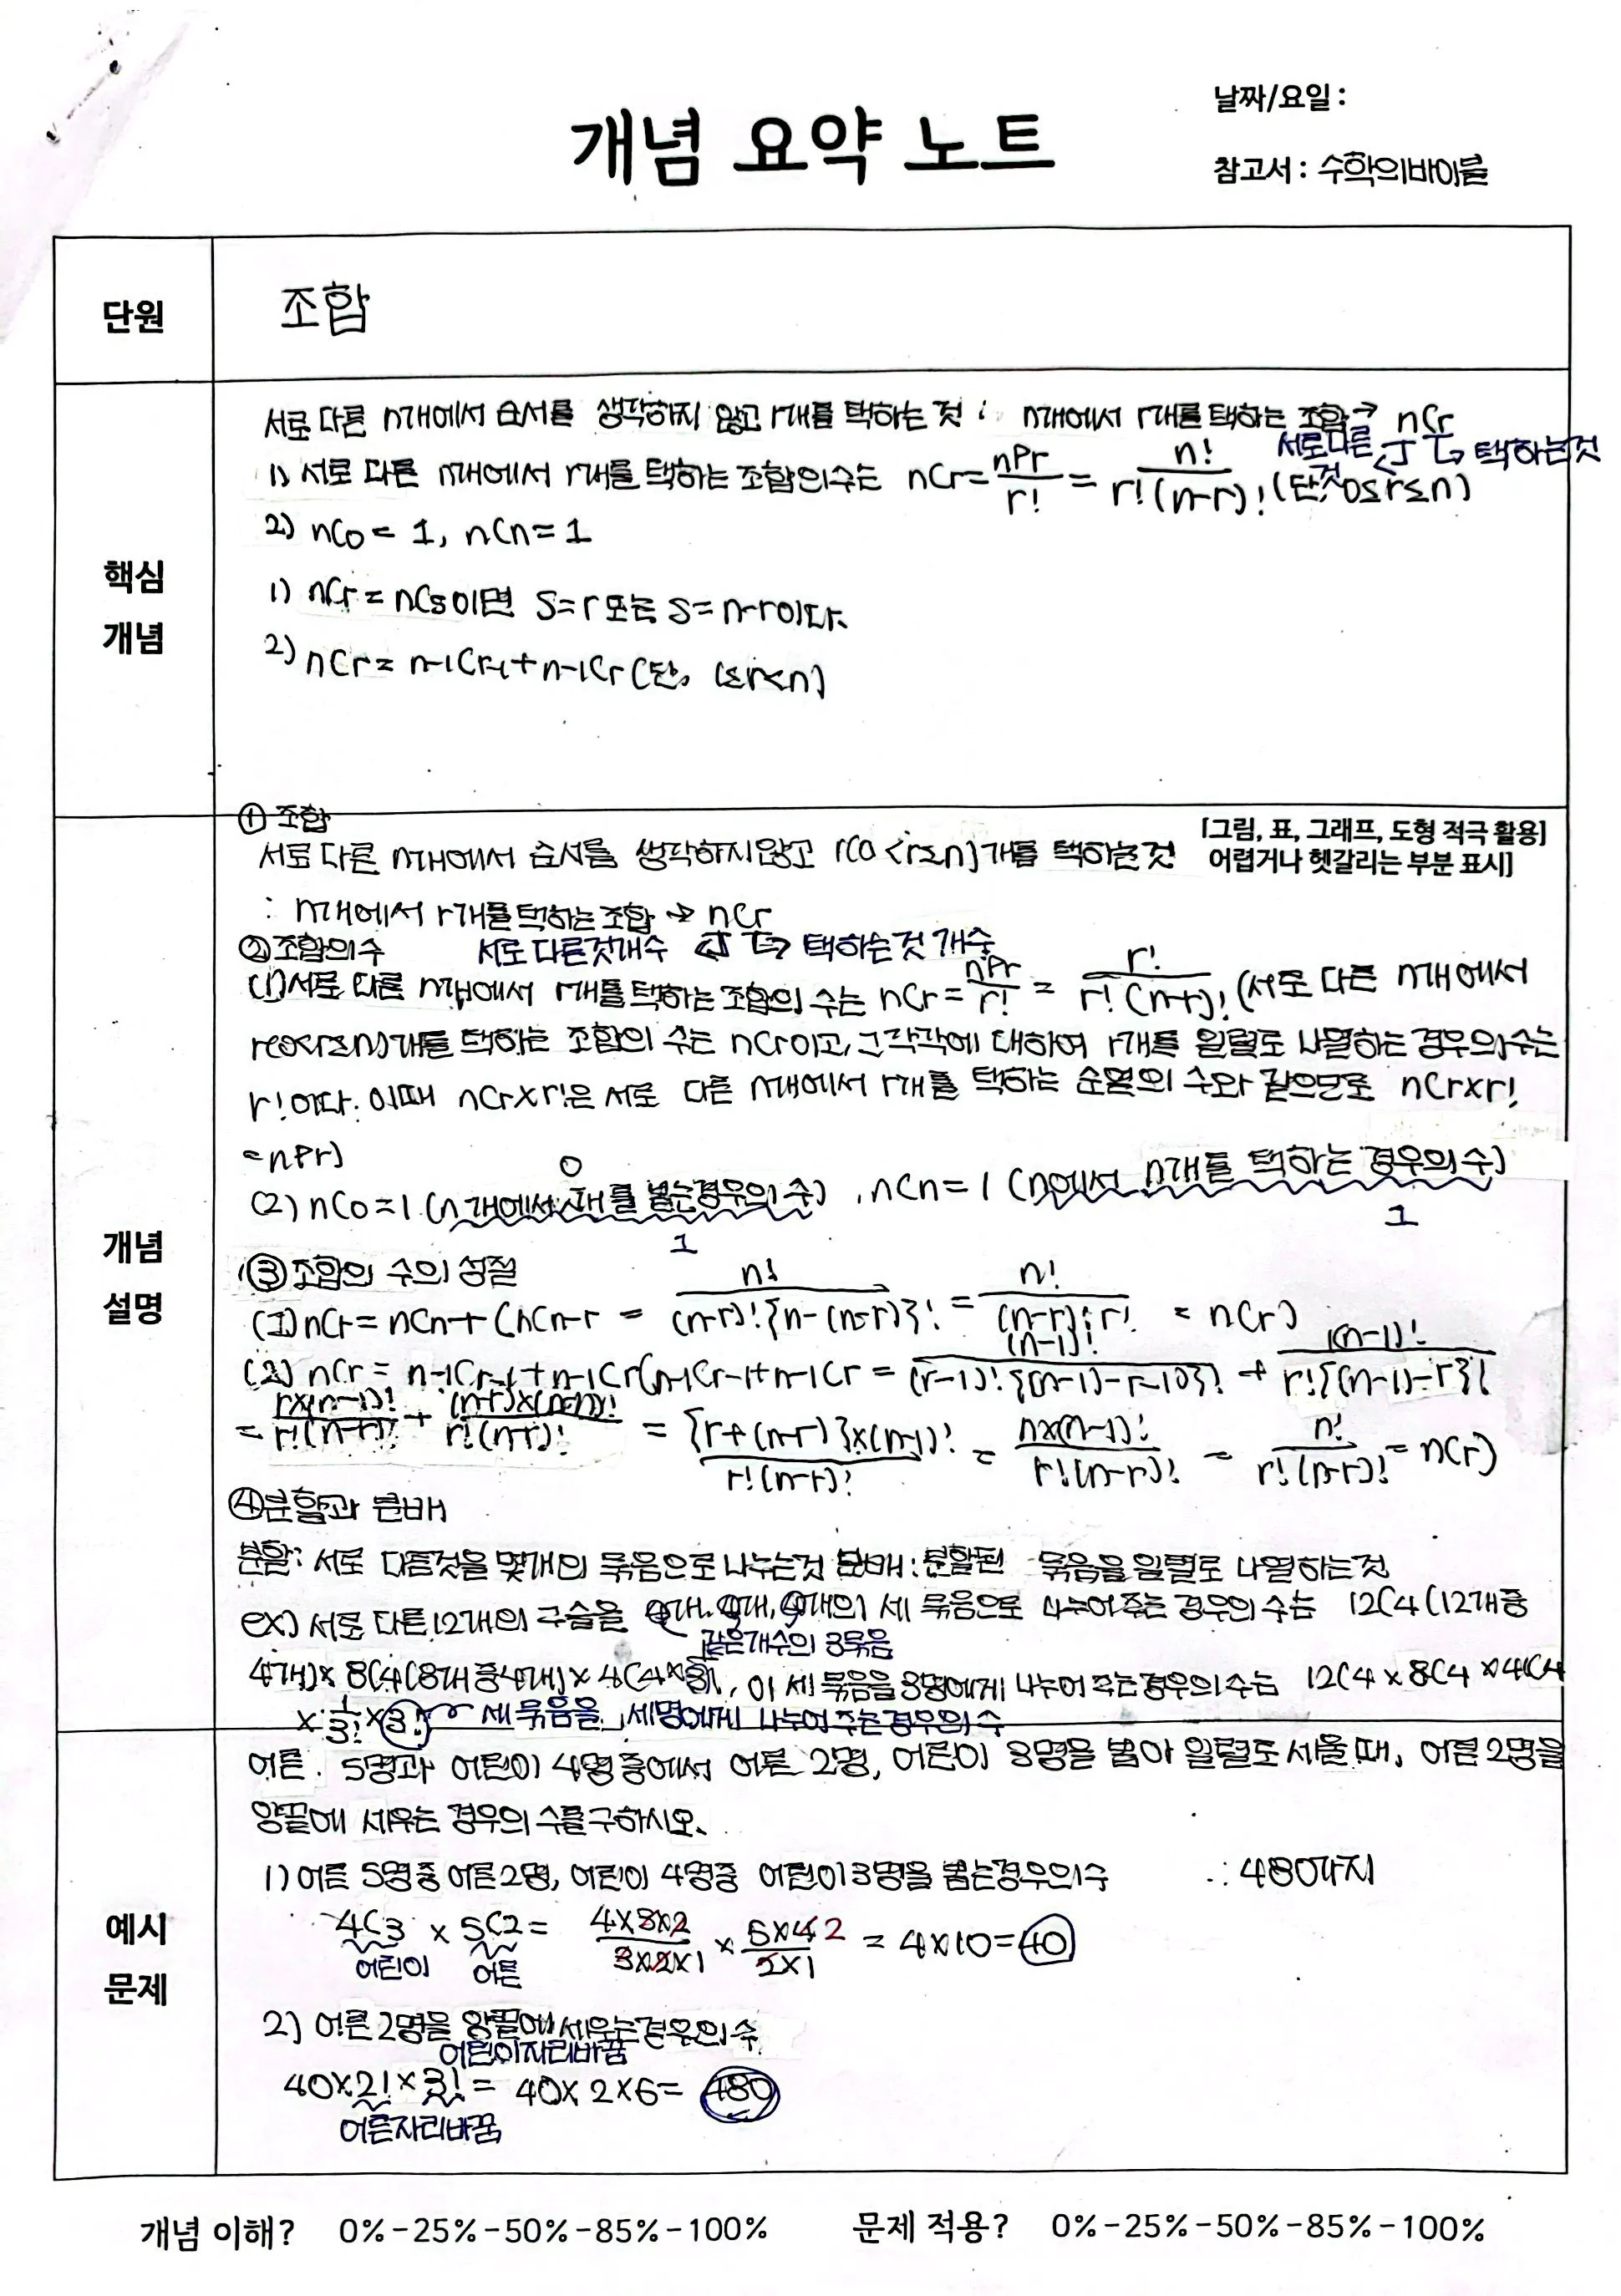 날짜/요일 :
개념 요약 노트
참고서 : 수학의바이블
단원
조합
핵심
개념
서로 다른 n개에서 순서를 생각하지 않고 r개를 택하는 것 : n개에서 r개를 택하는 조합 → nCr
서로다른 것 ↵ ↳ 택하는것
1) 서로 다른 n개에서 r개를 택하는 조합의수는 nCr = nPr/r! = n!/r!(n-r)! (단, 0≤r≤n)
2) nC0 = 1, nCn = 1
1) nCr = nCs이면 s=r 또는 s=n-r이다.
2) nCr = n-1Cr-1 + n-1Cr (단, 1≤r<n)
개념
설명
[그림, 표, 그래프, 도형 적극 활용]
어렵거나 헷갈리는 부분 표시]
① 조합
서로 다른 n개에서 순서를 생각하지않고 r(0<r≤n)개를 택하는것
: n개에서 r개를 택하는 조합 → nCr
② 조합의수 서로 다른것개수 ↵ ↳ 택하는것 개수
(1) 서로 다른 n개에서 r개를 택하는 조합의 수는 nCr = nPr/r! = r!/r!(n-r)! (서로 다른 n개에서
r(0<r≤n)개를 택하는 조합의 수는 nCr이고, 그각각에 대하여 r개를 일렬로 나열하는 경우의수는
r!이다. 이때 nCr×r!은 서로 다른 n개에서 r개를 택하는 순열의 수와 같으므로 nCr×r!
=nPr)
(2) nC0=1 (n개에서 0개를 뽑는경우의 수), nCn=1 (n에서 n개를 택하는 경우의수)
1 1
③ 조합의 수의 성질
(1) nCr = nCn-r (nCn-r = n!/(n-r)!{n-(n-r)}! = n!/(n-r)!r! = nCr)
(2) nCr = n-1Cr-1 + n-1Cr (n-1Cr-1 + n-1Cr = (n-1)!/(r-1)!{(n-1)-(r-1)}! + (n-1)!/r!{(n-1)-r}!
= r×(n-1)!/r!(n-r)! + (n-r)×(n-1)!/r!(n-r)! = {r+(n-r)}×(n-1)!/r!(n-r)! = n×(n-1)!/r!(n-r)! = n!/r!(n-r)! = nCr)
④ 분할과 분배
분할: 서로 다른것을 몇개의 묶음으로 나누는것 분배 : 분할된 묶음을 일렬로 나열하는것
ex) 서로 다른 12개의 구슬을 4개, 4개, 4개의 세 묶음으로 나누어 주는 경우의 수는 12C4 (12개중
같은개수의 3묶음
4개) × 8C4 (8개 중 4개) × 4C4 × 1/3!, 이 세 묶음을 3명에게 나누어 주는경우의 수는 12C4 × 8C4 × 4C4
× 1/3! × 3! 세 묶음을 세명에게 나누어 주는경우의 수
예시
문제
어른 5명과 어린이 4명 중에서 어른 2명, 어린이 3명을 뽑아 일렬로 세울 때, 어른 2명을
양끝에 세우는 경우의 수를 구하시오.
1) 어른 5명중 어른 2명, 어린이 4명중 어린이 3명을 뽑는경우의수 ∴ 480가지
4C3 × 5C2 = 4×3×2/3×2×1 × 5×4 2/2×1 = 4×10 = 40
어린이 어른
2) 어른 2명을 양끝에 세우는 경우의 수
어린이자리바꿈
40×2!×3! = 40×2×6 = 480
어른자리바꿈
개념 이해? 0%-25%-50%-85%-100% 문제 적용? 0%-25%-50%-85%-100%